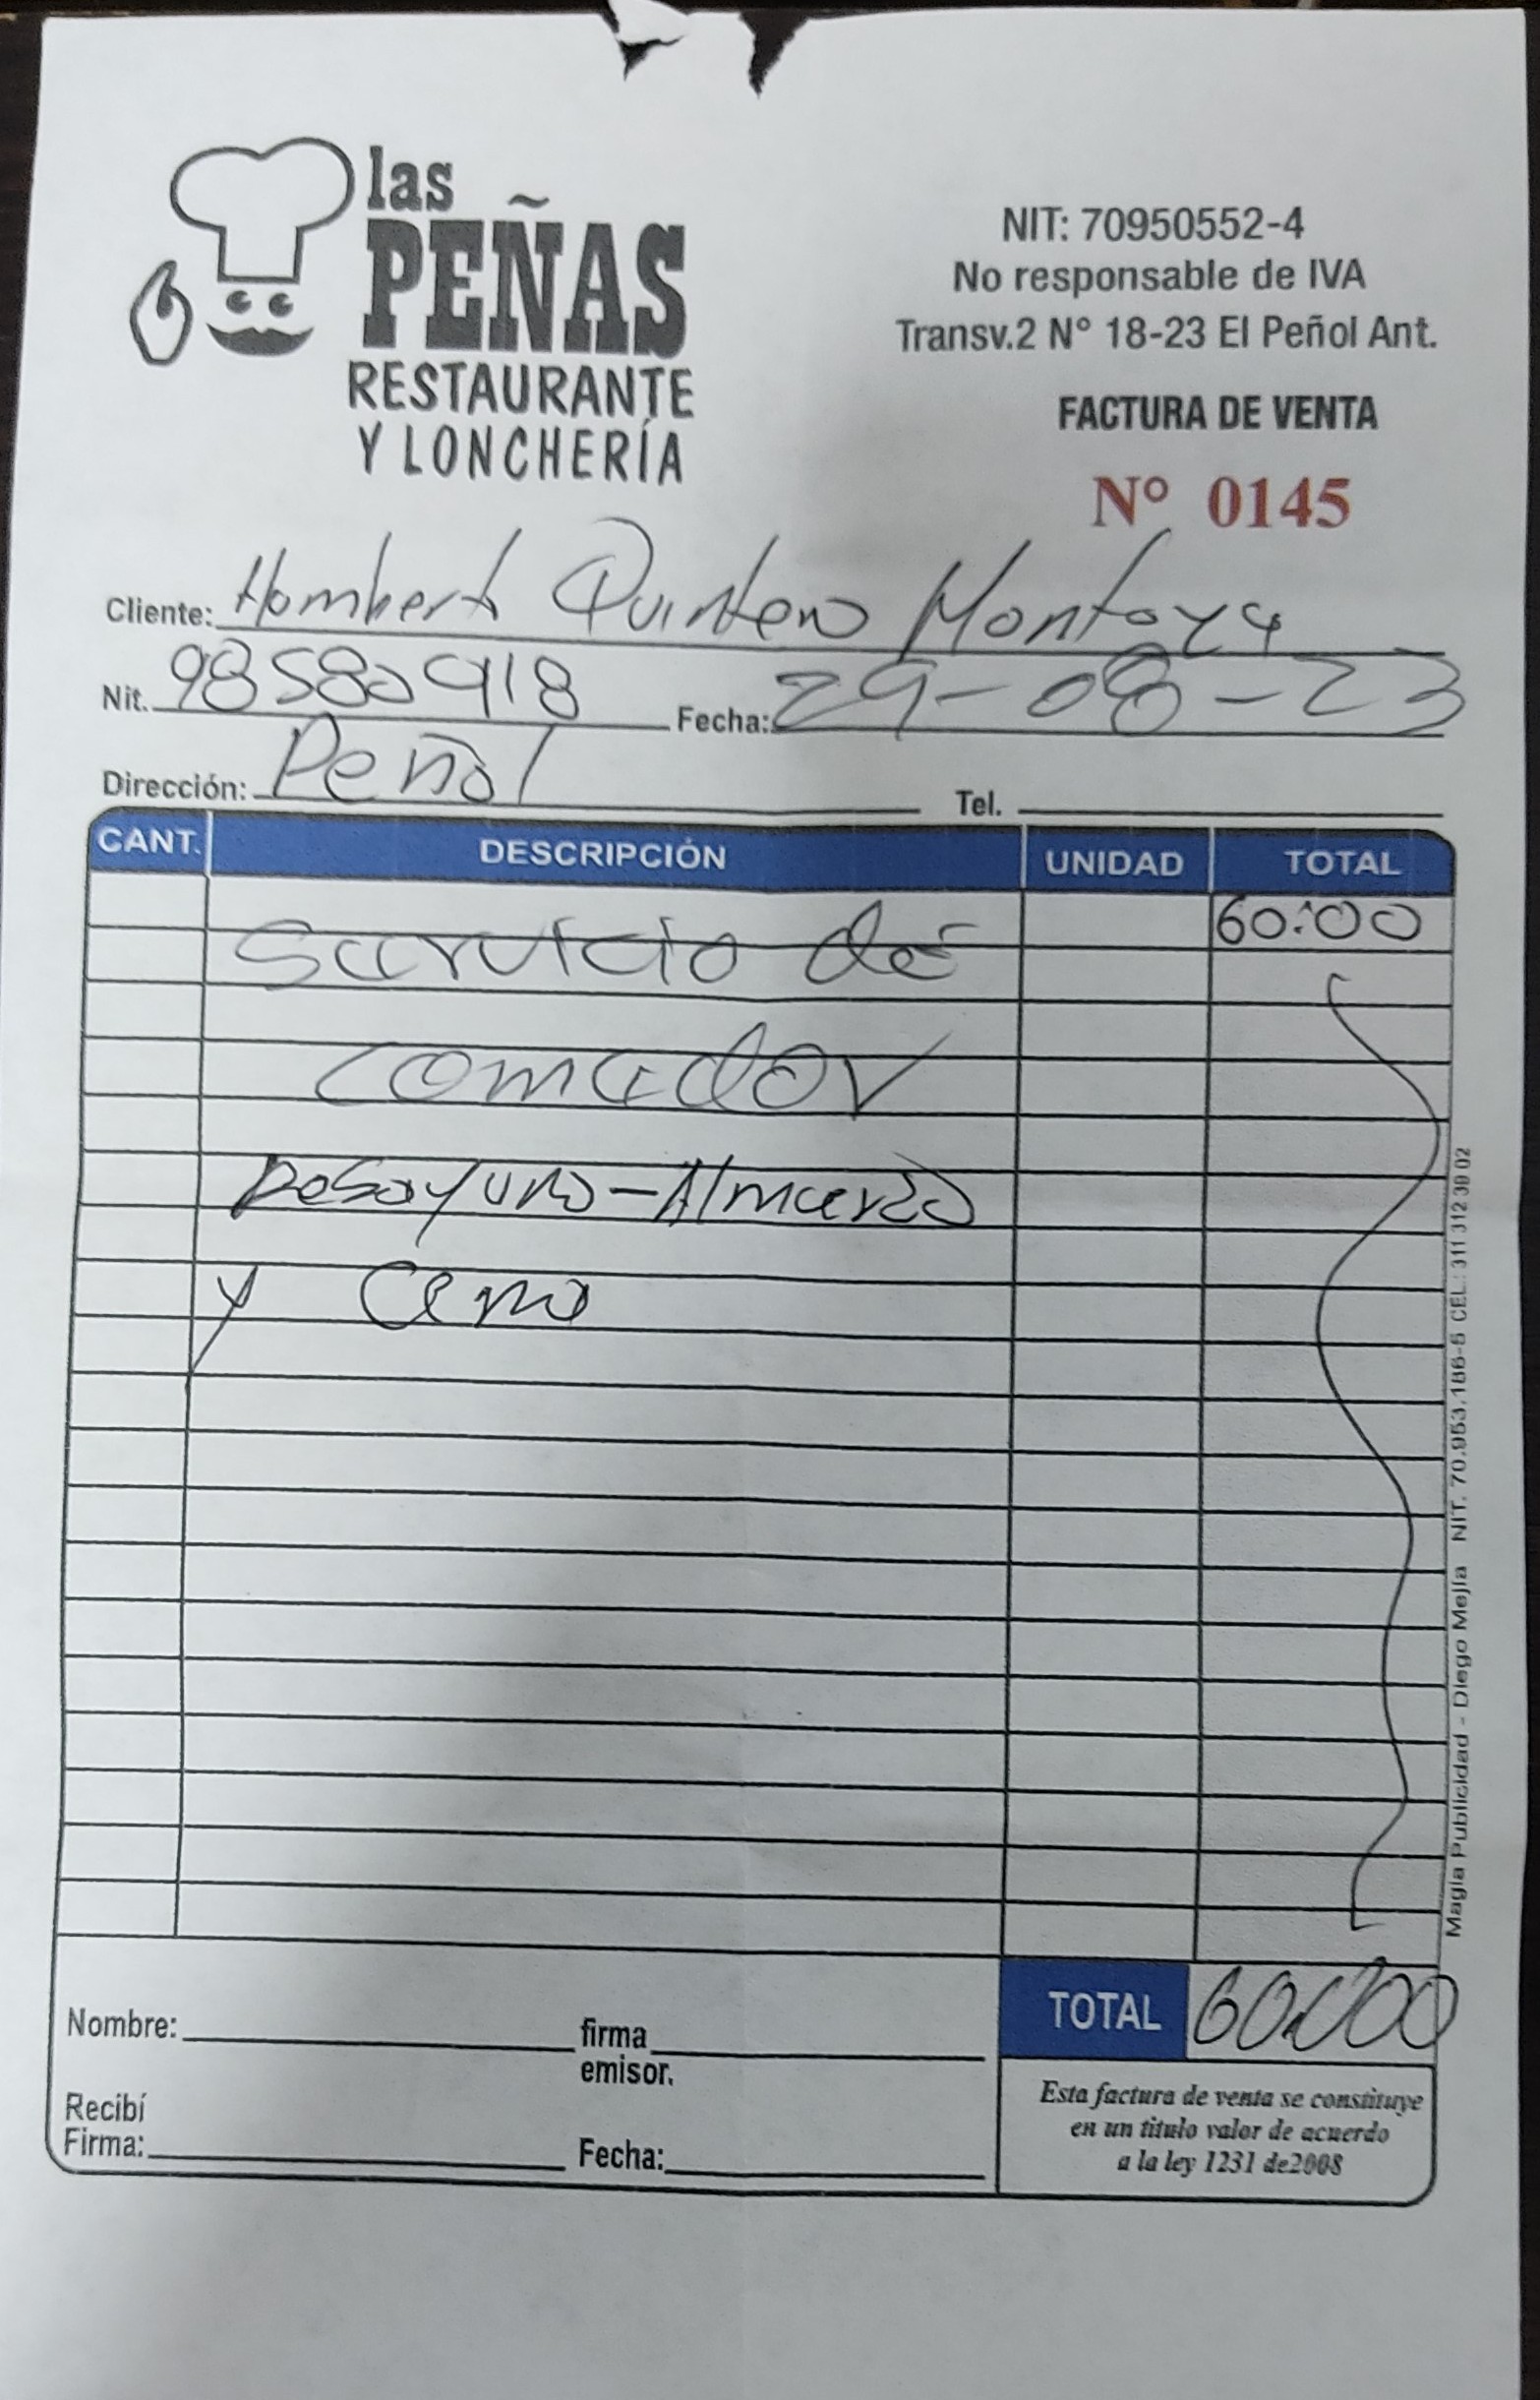 las
PEÑAS
RESTAURANTE
Y LONCHERÍA
NIT: 70950552-4
No responsable de IVA
Transv.2 N° 18-23 El Peñol Ant.
FACTURA DE VENTA
N° 0145
Cliente: Homberto Quintero Montoya
Nit. 98580918 Fecha: 29-08-23
Dirección: Peñol Tel.
CANT. DESCRIPCIÓN UNIDAD TOTAL
60:00
Servicio de
comedor
Desayuno-Almuerzo
y Cena
TOTAL 60.000
Nombre: firma
emisor.
Recibí
Firma: Fecha:
Esta factura de venta se constituye
en un titulo valor de acuerdo
a la ley 1231 de2008
Magia Publicidad - Diego Mejía NIT. 70.953.186-5 CEL.: 311 312 39 02